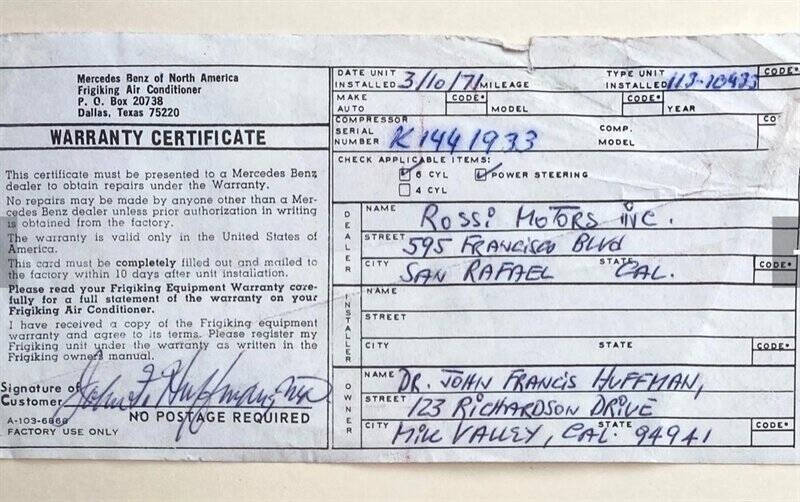 Mercedes Benz of North America
Frigiking Air Conditioner
P. O. Box 20738
Dallas, Texas 75220
WARRANTY CERTIFICATE
This certificate must be presented to a Mercedes Benz
dealer to obtain repairs under the Warranty.
No repairs may be made by anyone other than a Mer-
cedes Benz dealer unless prior authorization in writing
is obtained from the factory.
The warranty is valid only in the United States of
America.
This card must be completely filled out and mailed to
the factory within 10 days after unit installation.
Please read your Frigiking Equipment Warranty care-
fully for a full statement of the warranty on your
Frigiking Air Conditioner.
I have received a copy of the Frigiking equipment
warranty and agree to its terms. Please register my
Frigiking unit under the warranty as written in the
Frigiking owner's manual.
Signature of
Customer John F. Huffman, MD
NO POSTAGE REQUIRED
A-103-6868
FACTORY USE ONLY
DATE UNIT INSTALLED 3/10/71 MILEAGE TYPE UNIT INSTALLED 113-10933 CODE*
MAKE AUTO CODE* MODEL CODE* YEAR
COMPRESSOR SERIAL NUMBER K1441933 COMP. MODEL CO
CHECK APPLICABLE ITEMS:
6 CYL POWER STEERING
4 CYL
DEALER
NAME ROSSI MOTORS INC.
STREET 595 FRANCISCO BLVD
CITY SAN RAFAEL STATE CAL. CODE*
INSTALLER
NAME
STREET
CITY STATE CODE*
OWNER
NAME DR. JOHN FRANCIS HUFFMAN,
STREET 123 RICHARDSON DRIVE
CITY MILL VALLEY, STATE CAL. 94941 CODE*